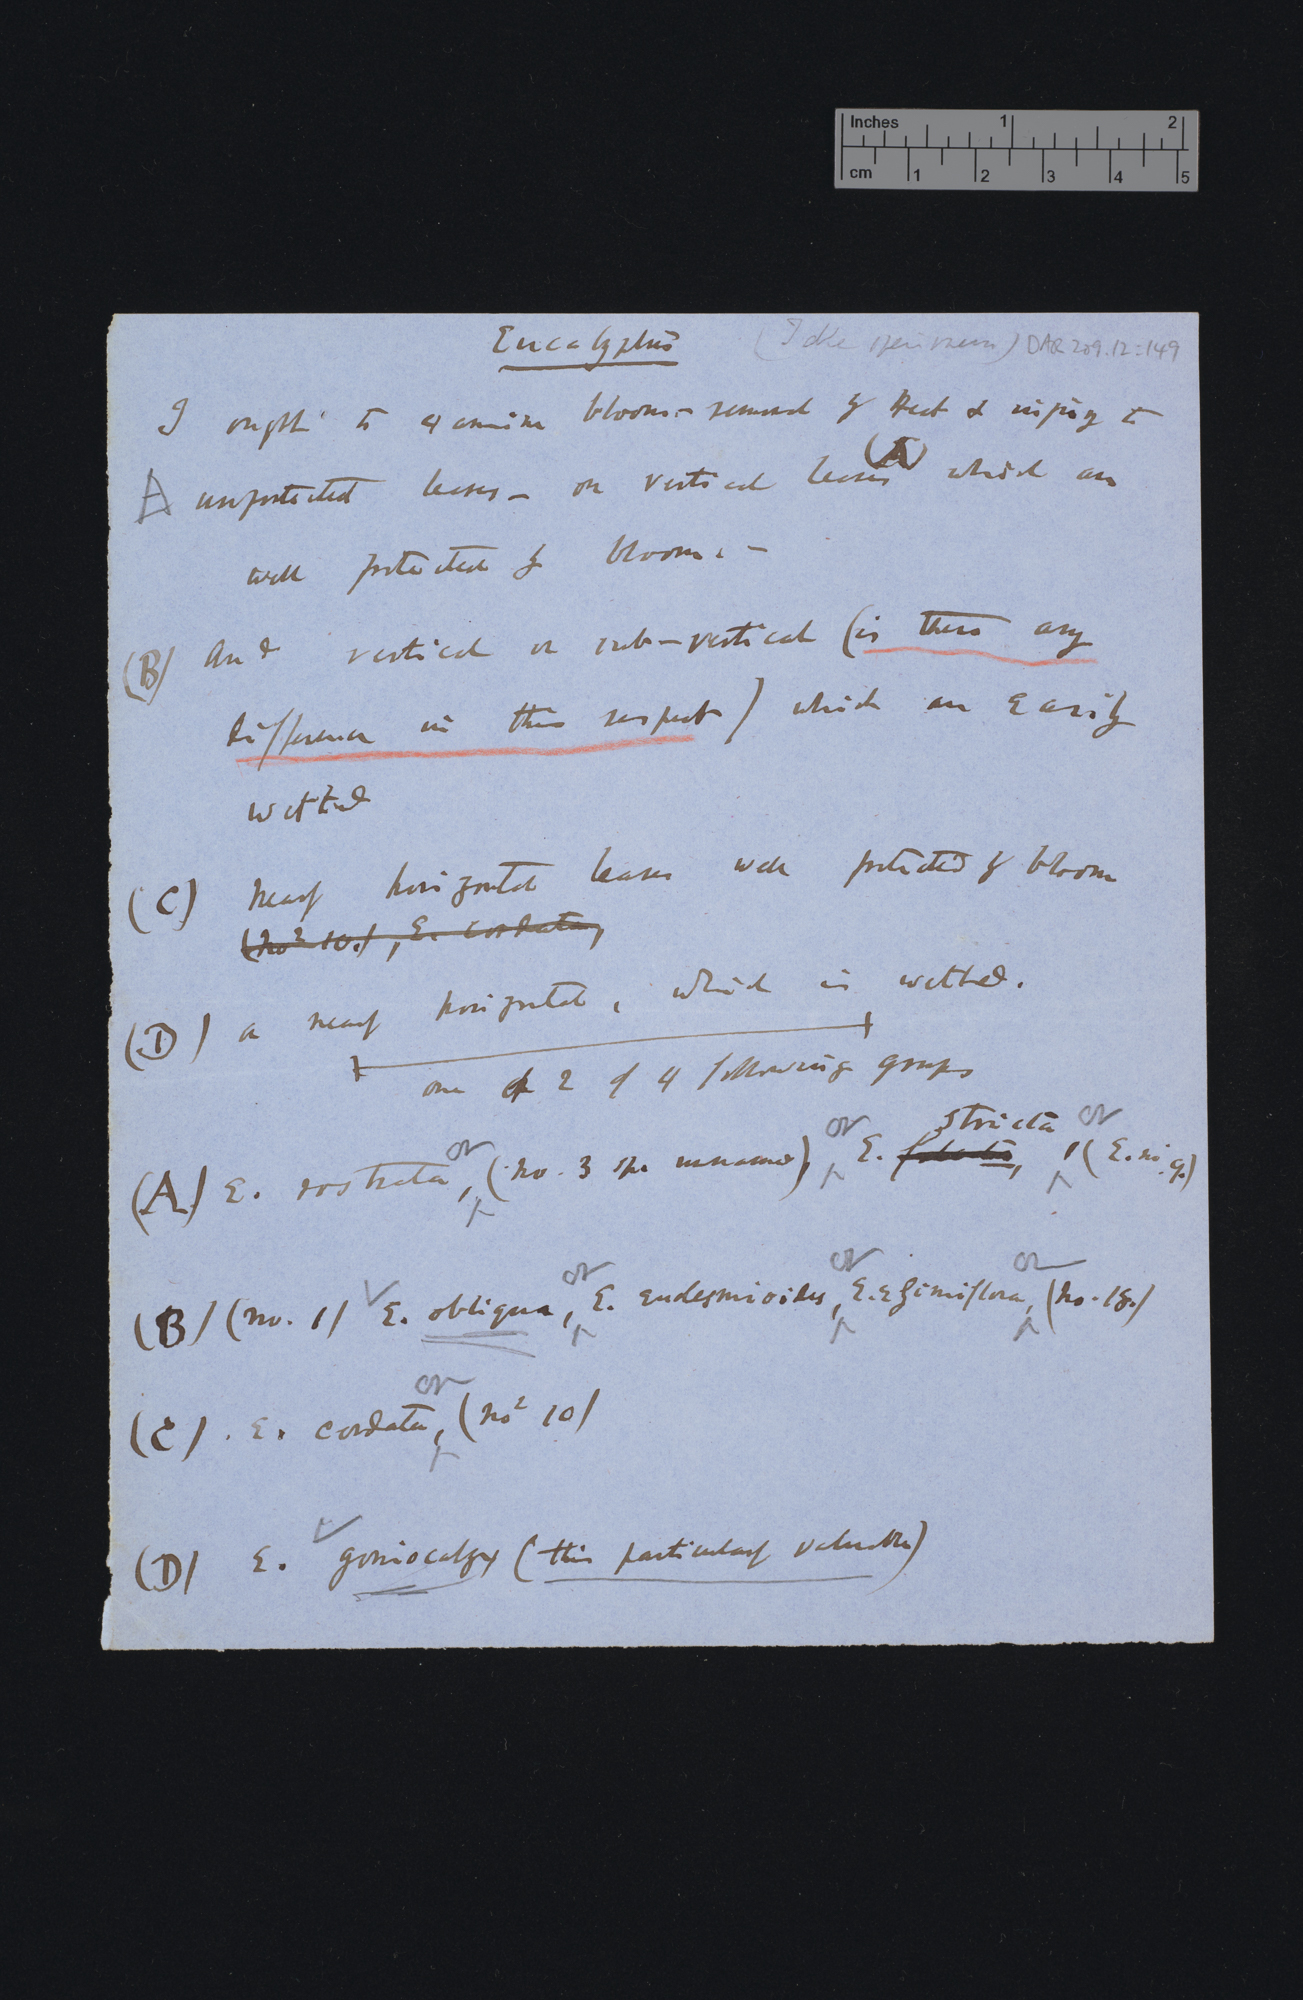 Inches 1 2
cm 1 2 3 4 5
Eucalyptus DAR 209.12:149
I ought to examine bloom — removed by Heat & wiping to
A unprotected leaves — on vertical leaves (A) which are
well protected by bloom. —
(B) And vertical or sub-vertical (is there any
difference in this respect) which are easily
wetted
(C) Nearly horizontal leaves well protected by bloom
(No 10.), E. cordata,
(D) a nearly horizontal, which is wetted.
one or 2 of 4 following groups
stricta
(A) E. rostrata, or (No. 3 sp. unnamed), or E. , or (E. nig.)
(B) (No. 1) E. obliqua, or E. eudesmioides, or E. eximiflora, or (No. 18.)
(C) . E. cordata, or (No 10)
(D) E. goniocalyx (this particularly valuable)